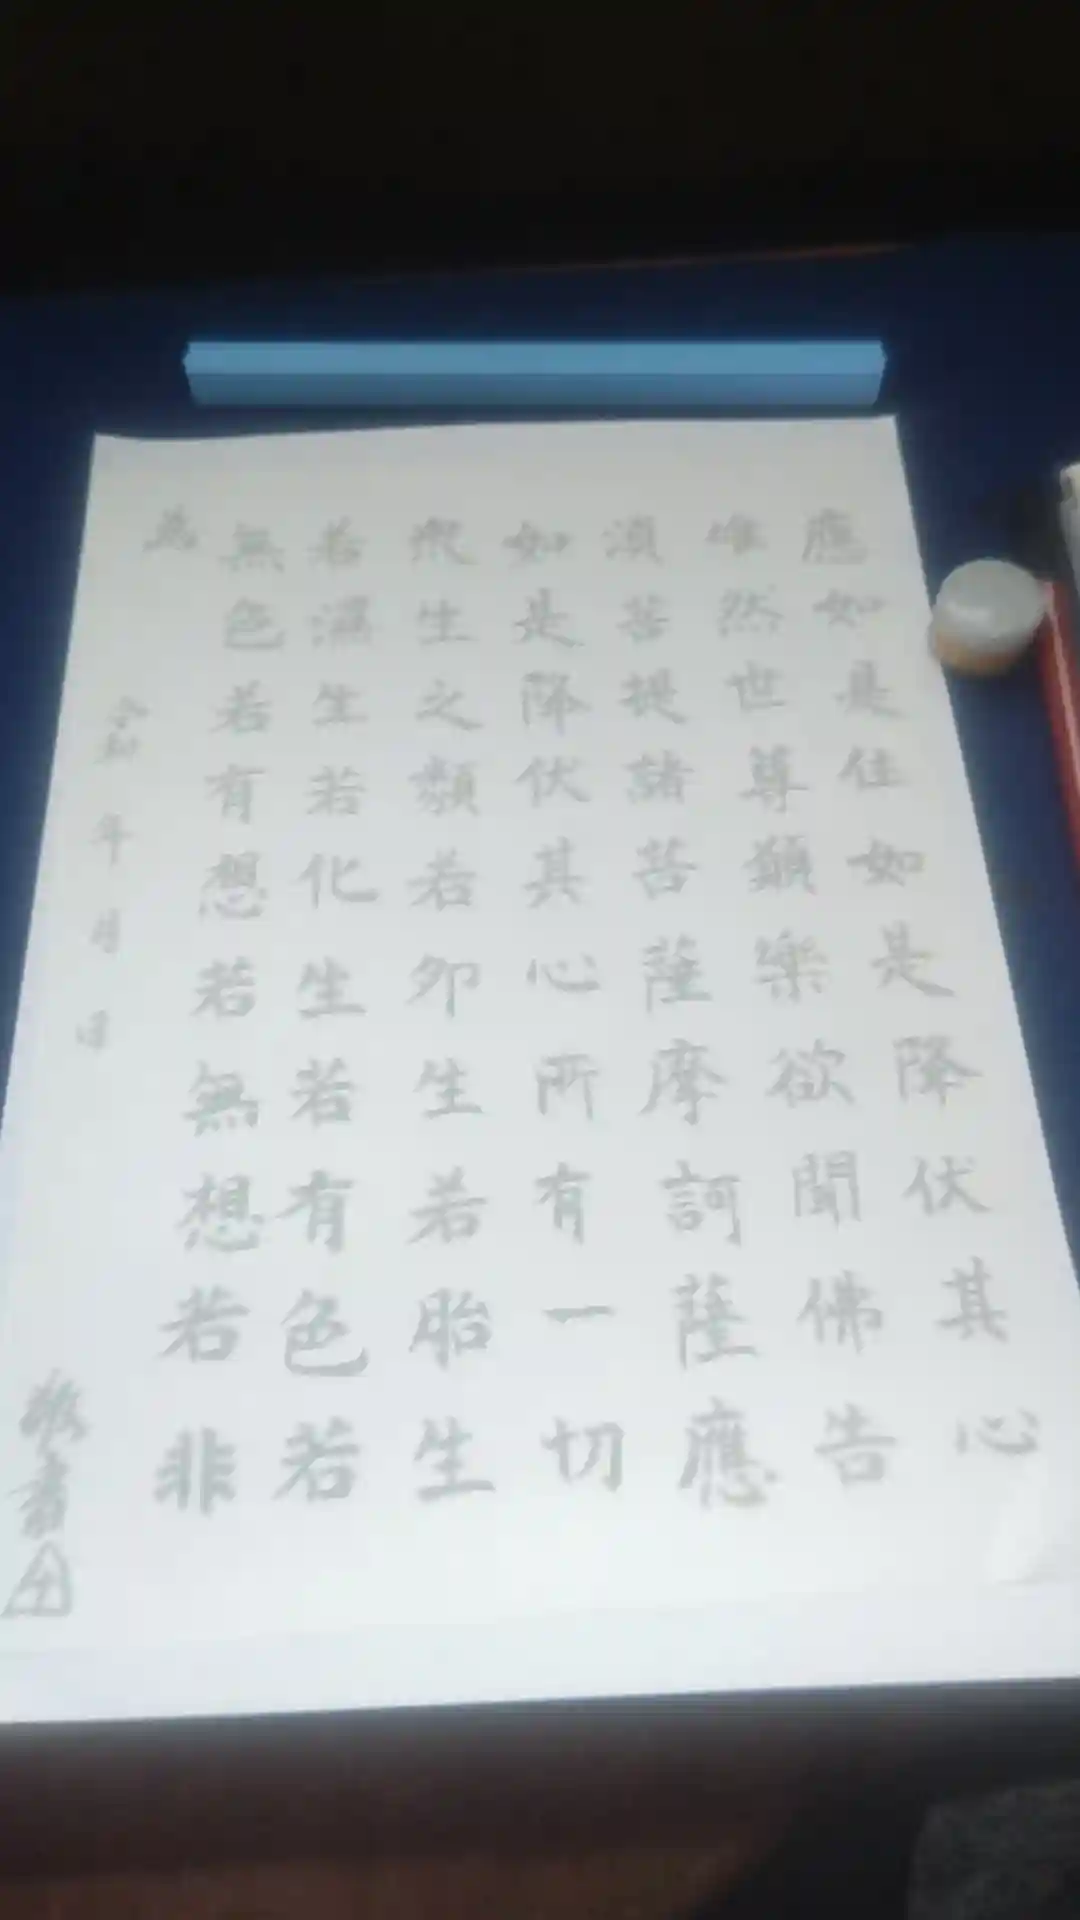 應如是住如是降伏其心
唯然世尊願樂欲聞佛告
須菩提諸菩薩摩訶薩應
如是降伏其心所有一切
衆生之類若卵生若胎生
若濕生若化生若有色若
無色若有想若無想若非
為
令和 年 月 日
敬書